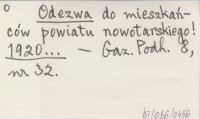 Odezwa do mieszkań-
ców powiatu nowotarskiego!
1920... — Gaz. Podh. 8,
nr 32.